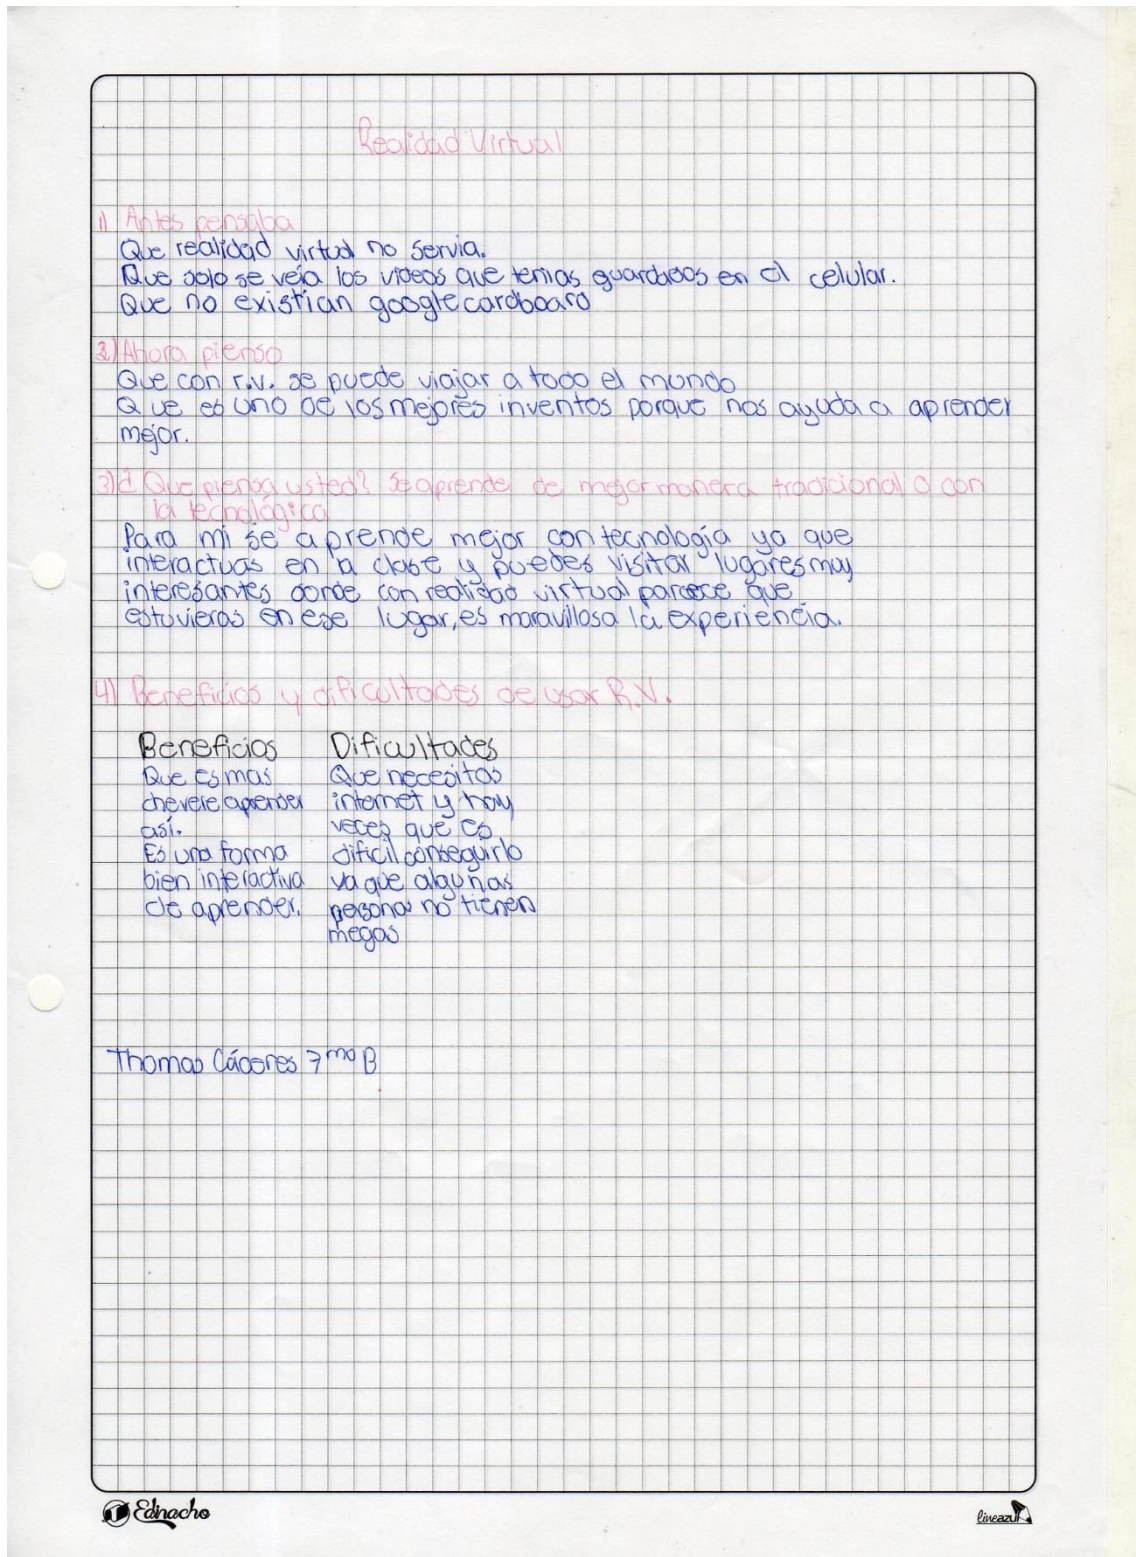 Realidad Virtual
1) Antes pensaba
Que realidad virtual no servia.
Que solo se veía los videos que tenias guardados en el celular.
Que no existian google cardboard
2) Ahora pienso
Que con r.v. se puede viajar a todo el mundo
Que es uno de los mejores inventos porque nos ayuda a aprender
mejor.
3) ¿Que piensa usted? Se aprende de mejor manera tradicional o con
la technológica
Para mi se aprende mejor con tecnología ya que
interactuas en la clase y puedes visitar lugares muy
interesantes donde con realidad virtual parece que
estuvieras en ese lugar, es maravillosa la experiencia.
4) Beneficios y dificultades de usar R.V.
Beneficios Dificultades
Que es mas Que necesitas
chevere aprender internet y hay
así. veces que es
Es una forma dificil conseguirlo
bien interactiva ya que algunas
de aprender. personas no tienen
megas
Thomas Cáceres 7mo B
Edinacho lineazul